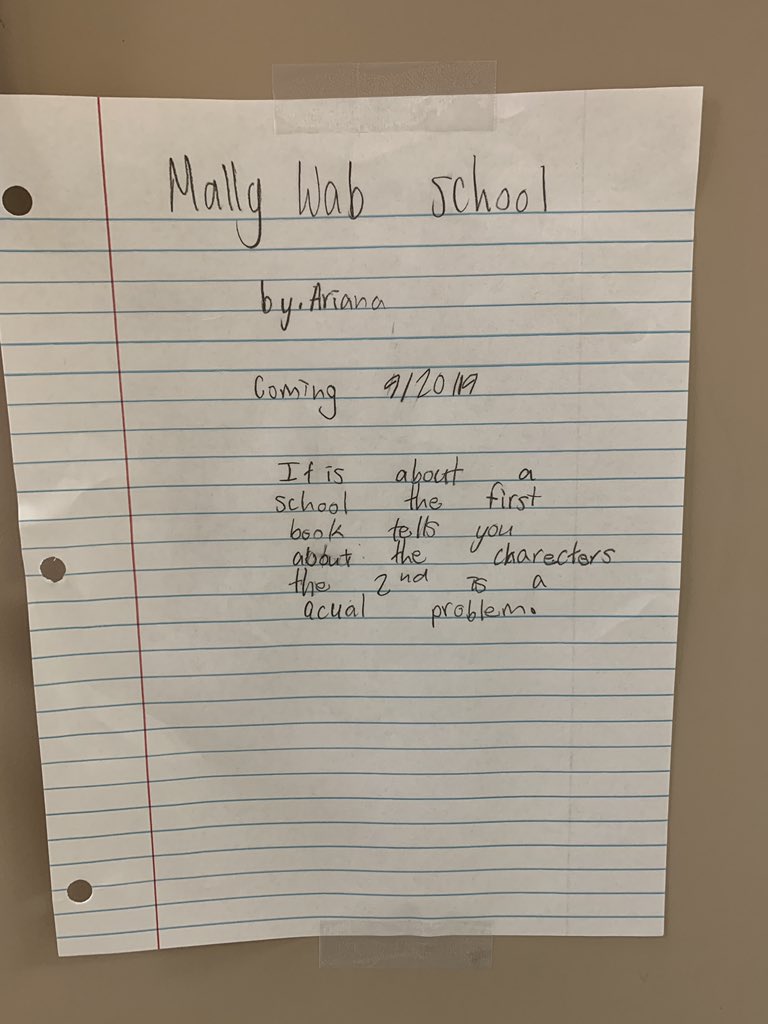 Mally Wab school
by. Ariana
Coming 9/20/19
It is about a
school the first
book tells you
about the charecters
the 2nd is a
acual problem.